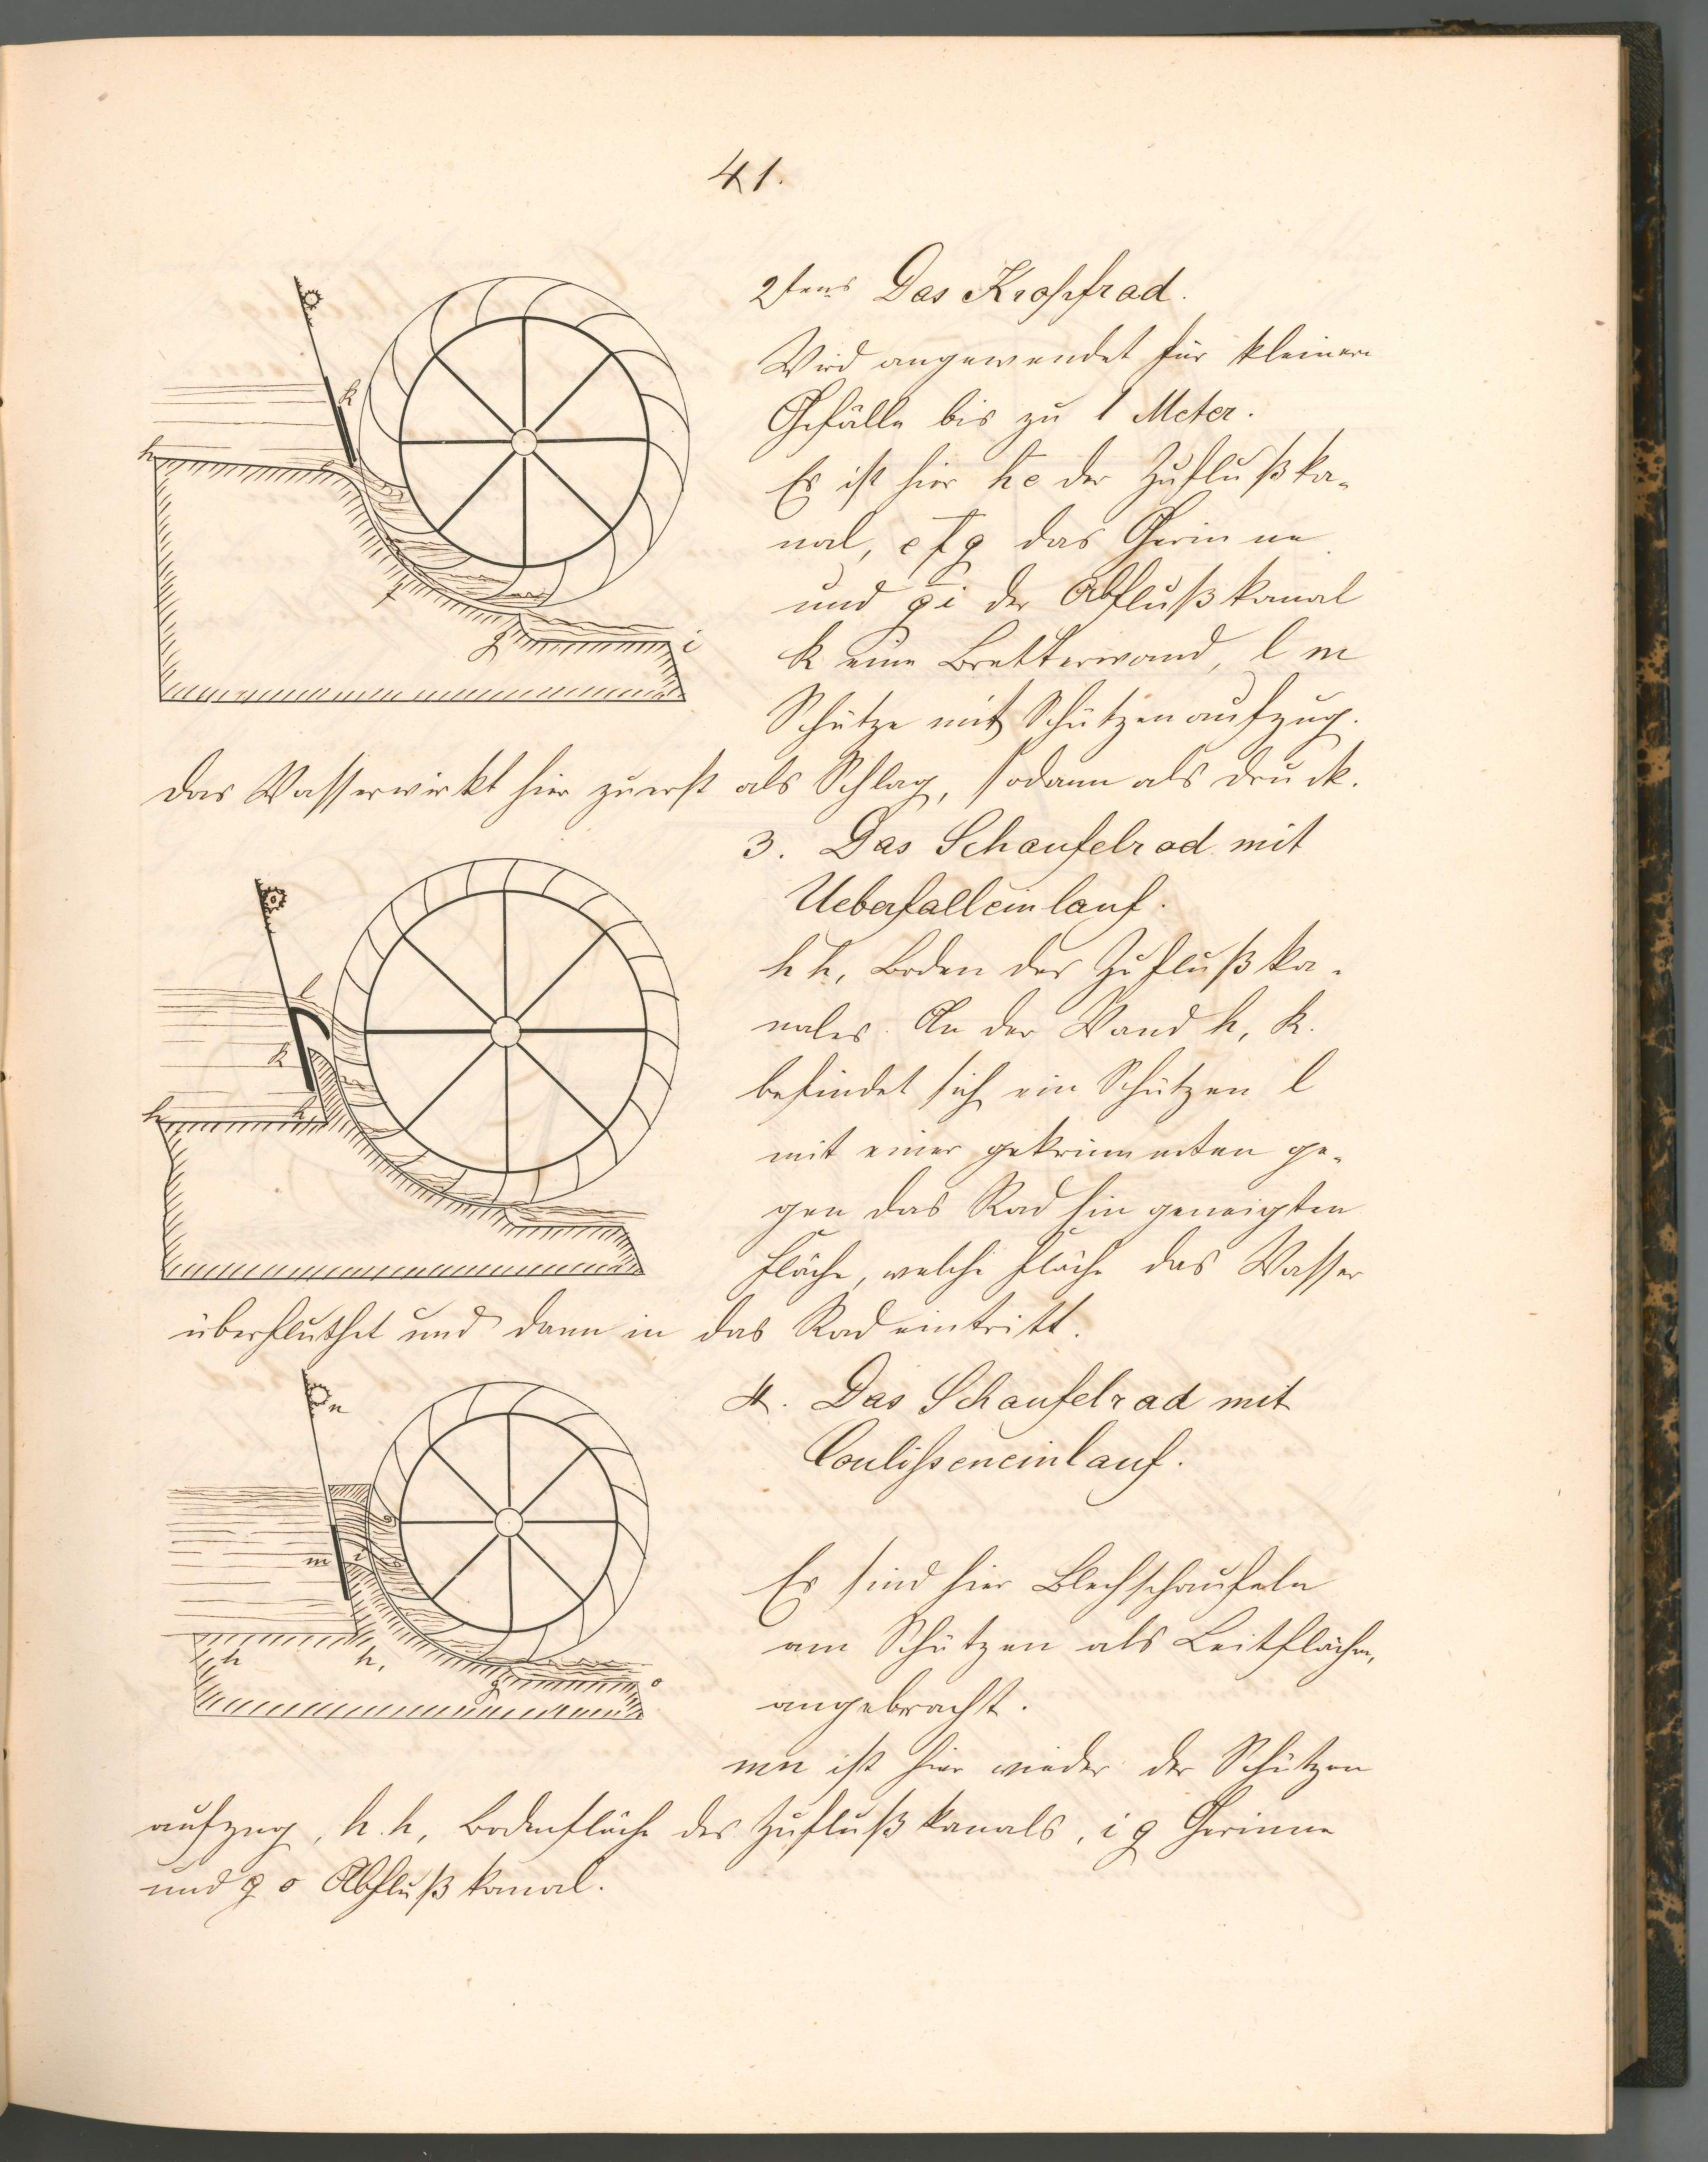 41.
2tens Das Kropfrad.
Wird angewendet für kleinere
Gefälle bis zu 1 Meter.
Es ist hier he der Zuflußka-
nal, efg das Gerinne
und gi der Abflußkanal
k eine Bretterwand, l m
Schütze mit Schützenaufzug.
Das Wasser wirkt hier zuerst als Schlag, sodann als Druck.
3. Das Schaufelrad mit
Ueberfalleinlauf.
h h, Boden des Zuflußka-
nales. An der Wand h, k.
befindet sich ein Schützen l
mit einer gekrümmten ge-
gen das Rad hin geneigten
Fläche, welche Fläche das Wasser
überfluthet und dann in das Rad eintritt.
4. Das Schaufelrad mit
Coulisseneinlauf.
Es sind hier Blechschaufeln
am Schützen als Leitflächen,
angebracht.
mn ist hier wieder der Schützen
aufzug, h.h, Bodenfläche des Zuflußkanals, i g Gerinne
und g o Abflußkanal.
k
h
f
g
i
l
k
h
h,
n
m
i
h
h,
g
o